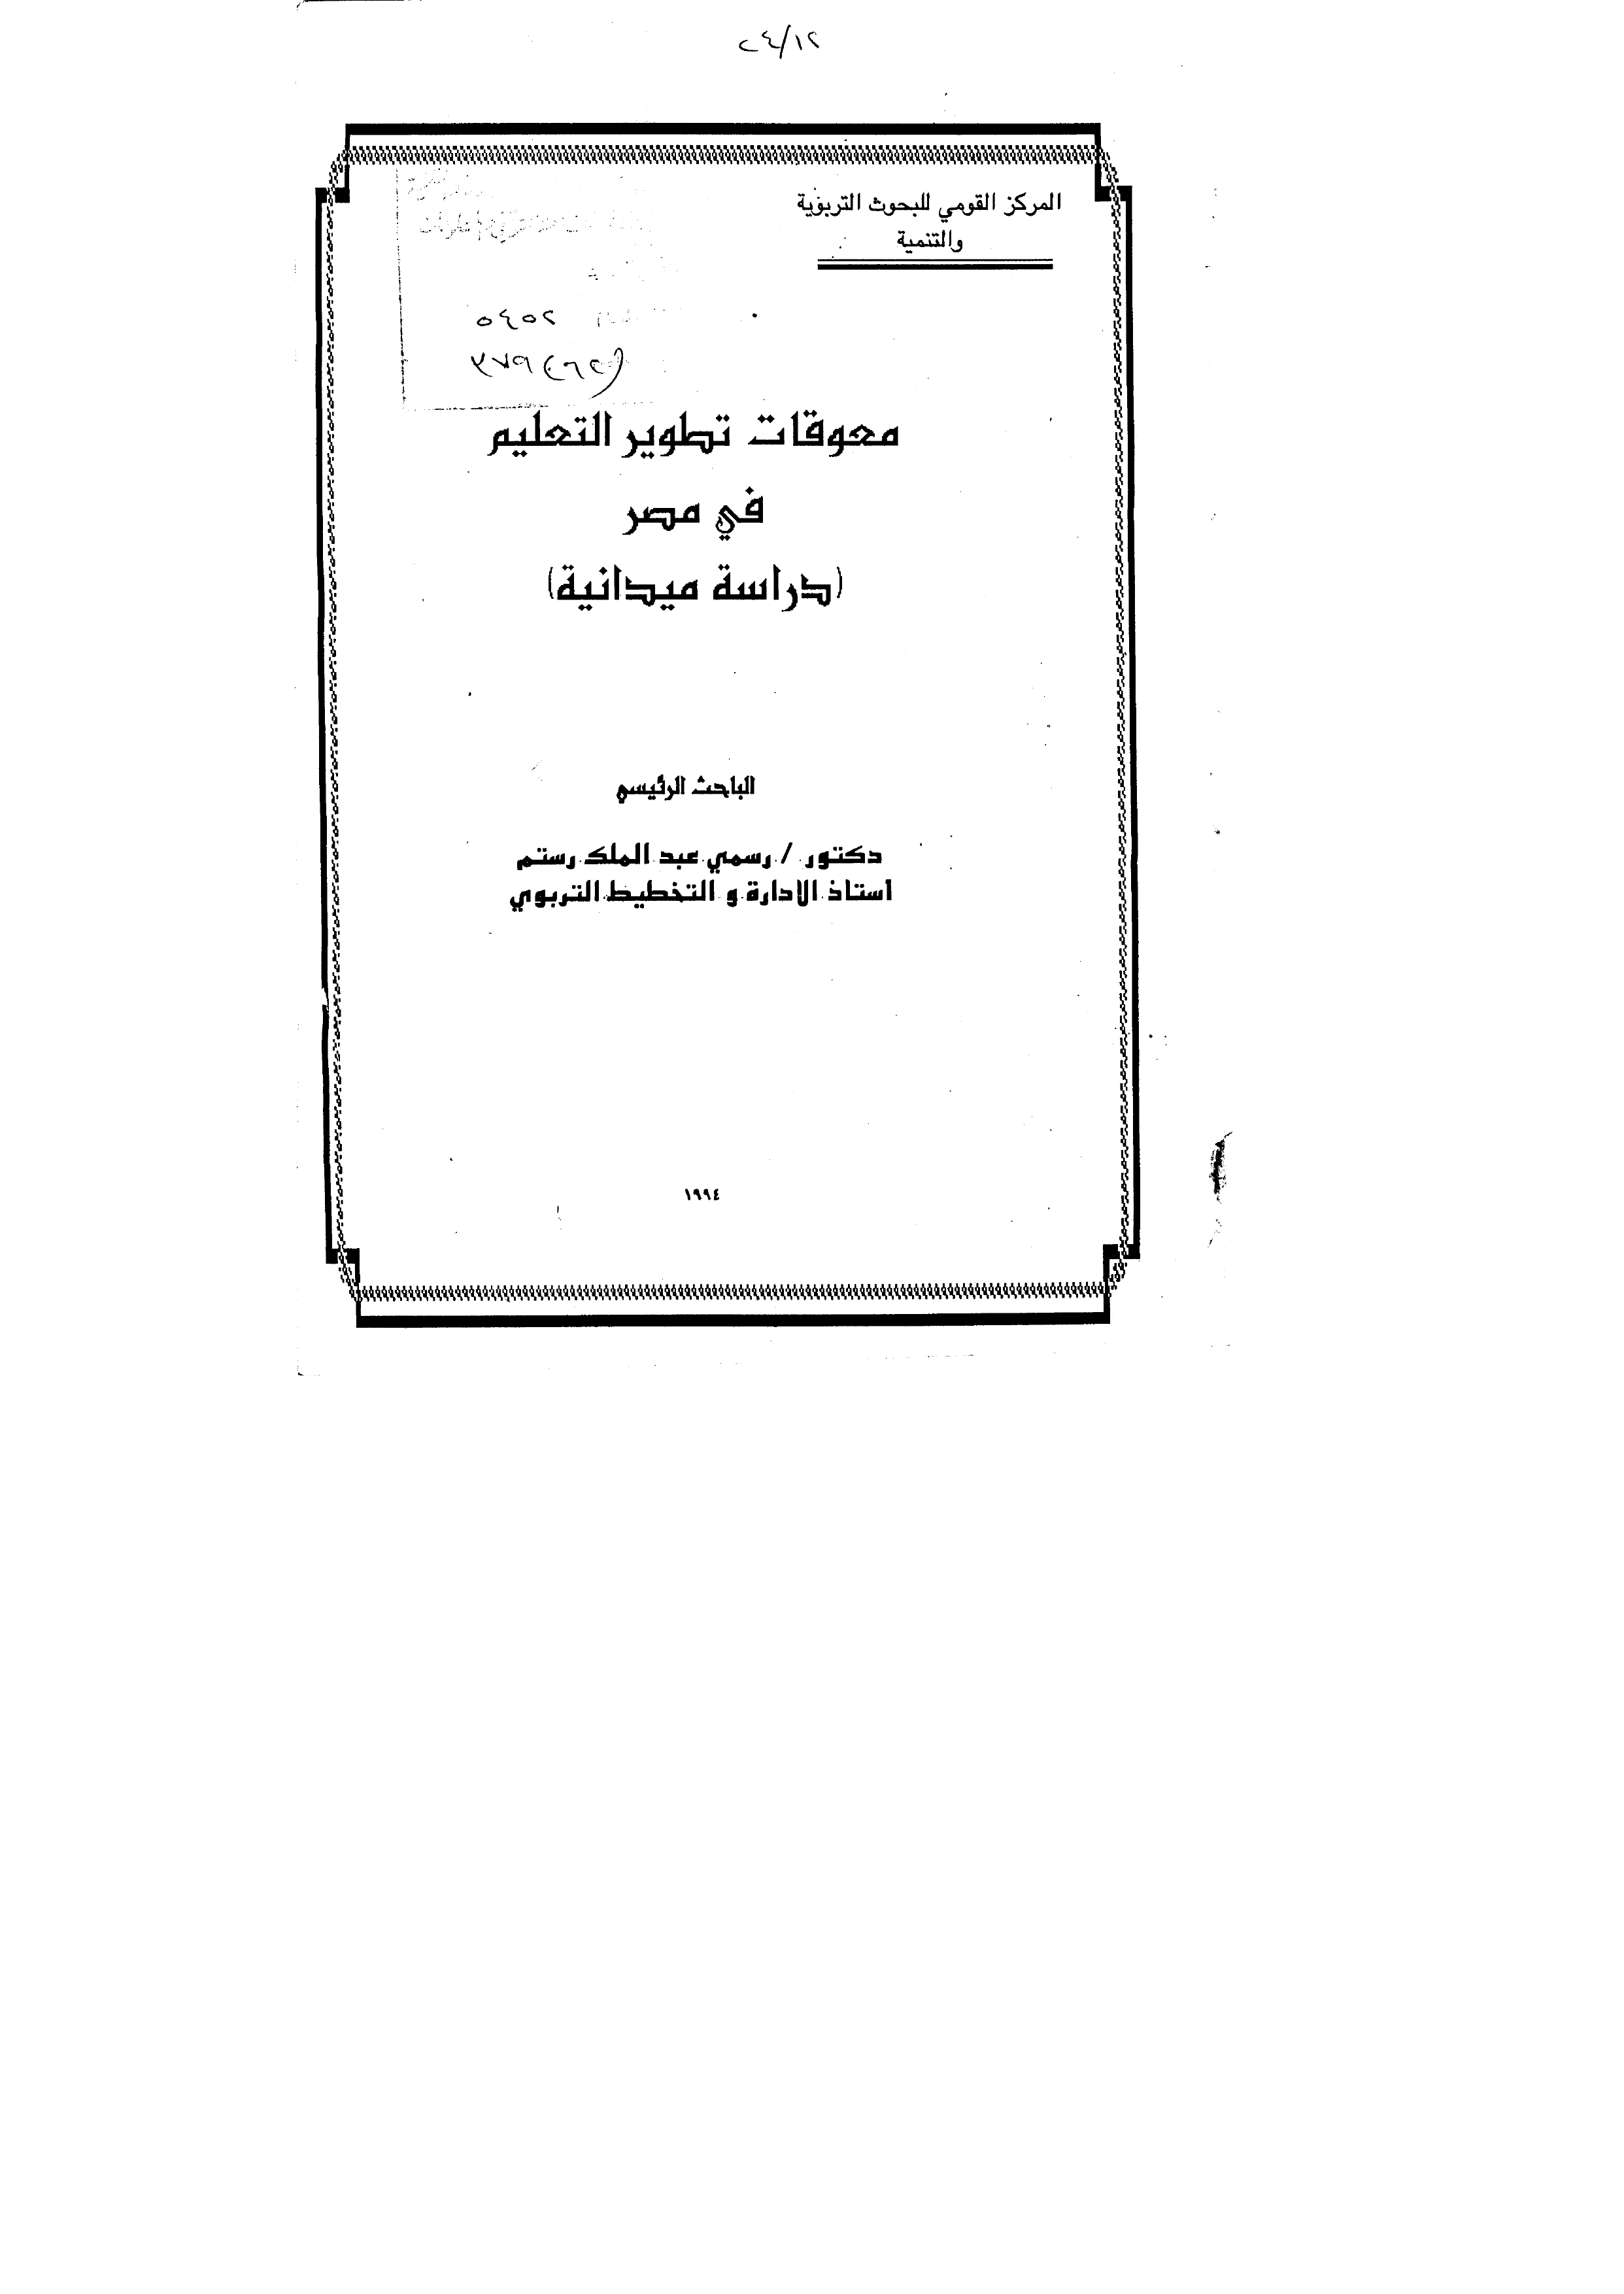 المركز القومي للبحوث التربوية
والتنمية
٢٥٤٥
معوقات تطوير التعليم
في مصر
(دراسة ميدانية)
الباحث الرئيسي
دكتور / رسمي عبد الملك رستم
استاذ الادارة و التخطيط التربوي
١٩٩٤